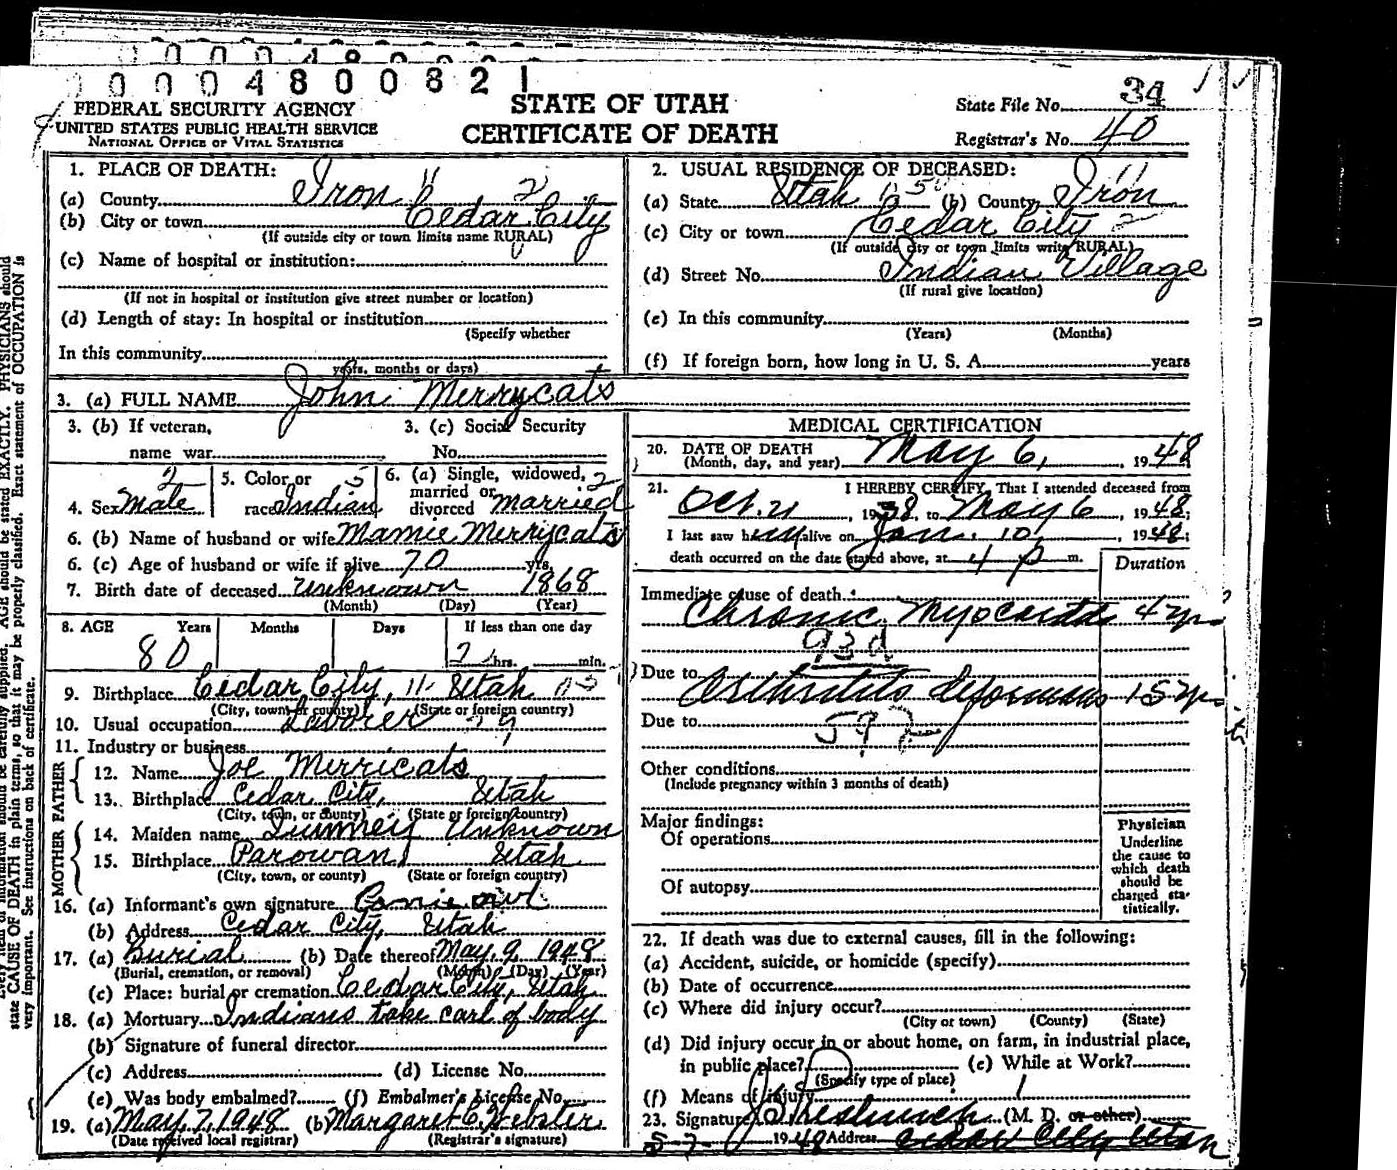 0000480082 1
FEDERAL SECURITY AGENCY
UNITED STATES PUBLIC HEALTH SERVICE
NATIONAL OFFICE OF VITAL STATISTICS
STATE OF UTAH
CERTIFICATE OF DEATH
State File No. 34
Registrar's No. 40
1. PLACE OF DEATH:
(a) County Iron 11 2
(b) City or town Cedar City
(If outside city or town limits name RURAL)
(c) Name of hospital or institution:
(If not in hospital or institution give street number or location)
(d) Length of stay: In hospital or institution
(Specify whether
In this community
years, months or days)
2. USUAL RESIDENCE OF DECEASED:
(a) State Utah (b) County Iron 11
(c) City or town Cedar City 2
(If outside city or town limits write RURAL)
(d) Street No. Indian Village
(If rural give location)
(e) In this community
(Years) (Months)
(f) If foreign born, how long in U. S. A. years
3. (a) FULL NAME John Merrycats
3. (b) If veteran, 3. (c) Social Security
name war No.
4. Sex Male 2
5. Color or race Indian 5
6. (a) Single, widowed, married or divorced Married 2
6. (b) Name of husband or wife Mamie Merrycats
6. (c) Age of husband or wife if alive 70 yrs.
7. Birth date of deceased Unknown 1868
(Month) (Day) (Year)
8. AGE Years Months Days If less than one day
80 2 hrs. min.
9. Birthplace Cedar City, 11 Utah
(City, town or county) (State or foreign country)
10. Usual occupation Laborer
11. Industry or business
FATHER
12. Name Joe Merricats
13. Birthplace Cedar City, Utah
(City, town, or county) (State or foreign country)
MOTHER
14. Maiden name Unknown
15. Birthplace Parowan, Utah
(City, town, or county) (State or foreign country)
16. (a) Informant's own signature
(b) Address Cedar City, Utah
17. (a) Burial (b) Date thereof May. 9, 1948
(Burial, cremation, or removal) (Month) (Day) (Year)
(c) Place: burial or cremation Cedar City, Utah
18. (a) Mortuary Indians take care of body
(b) Signature of funeral director
(c) Address (d) License No.
(e) Was body embalmed? (f) Embalmer's License No.
19. (a) May. 7, 1948 (b) Margaret C. Webster
(Date received local registrar) (Registrar's signature)
MEDICAL CERTIFICATION
20. DATE OF DEATH
(Month, day, and year) May 6, , 1948
21. I HEREBY CERTIFY, That I attended deceased from
Oct. 21, 1938, to May 6, 1948;
I last saw him alive on Jan. 10, 1948;
death occurred on the date stated above, at 4 p m.
Duration
Immediate cause of death:
Chronic Myocarditis 4 yrs
93d
Due to
Arthritis deformans 15 yrs
Due to
59
Other conditions
(Include pregnancy within 3 months of death)
Major findings:
Of operations
Of autopsy
Physician
Underline
the cause to
which death
should be
charged sta-
tistically.
22. If death was due to external causes, fill in the following:
(a) Accident, suicide, or homicide (specify)
(b) Date of occurrence
(c) Where did injury occur?
(City or town) (County) (State)
(d) Did injury occur in or about home, on farm, in industrial place,
in public place? (e) While at Work?
(Specify type of place)
(f) Means of injury
23. Signature (M. D. or other)
5-7- 1948 Address Cedar City Utah
state CAUSE OF DEATH in plain terms, so that it may be properly classified. Exact statement of OCCUPATION is
very important. See instructions on back of certificate.